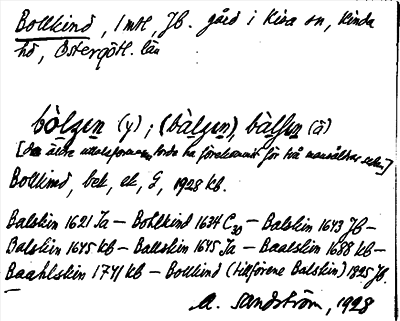 Bollkind, 1 mtl, JB. gård i Kisa sn, Kinda
hd, Östergötl. län
bòlzɩn (y); (bàlzɩn), bàlsɩn (ä)
[den äldre uttalsformen torde ha förekommit för två mansåldrar sedan]
Bollkind, bet, ek, G, 1928 kb.
Balskin 1621 Ja – Bohlkind 1634 C30 – Balskin 1643 JB –
Balskin 1645 kb – Ballskin 1645 Ja – Baalskin 1688 kb –
Baahlskin 1741 kb – Bollkind (tillförene Balskin) 1825 JB.
A. Sandström, 1928